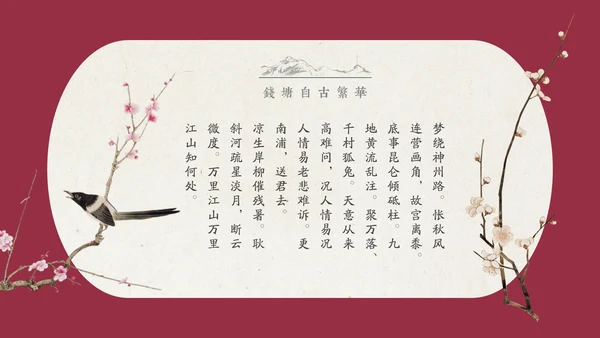 錢塘自古繁華
梦绕神州路。怅秋风
连营画角，故宫离黍。
底事昆仑倾砥柱。九
地黄流乱注。聚万落、
千村狐兔。天意从来
高难问，况人情易况
人情易老悲难诉。更
南浦，送君去。
凉生岸柳催残暑。耿
斜河疏星淡月，断云
微度。万里江山万里
江山知何处。